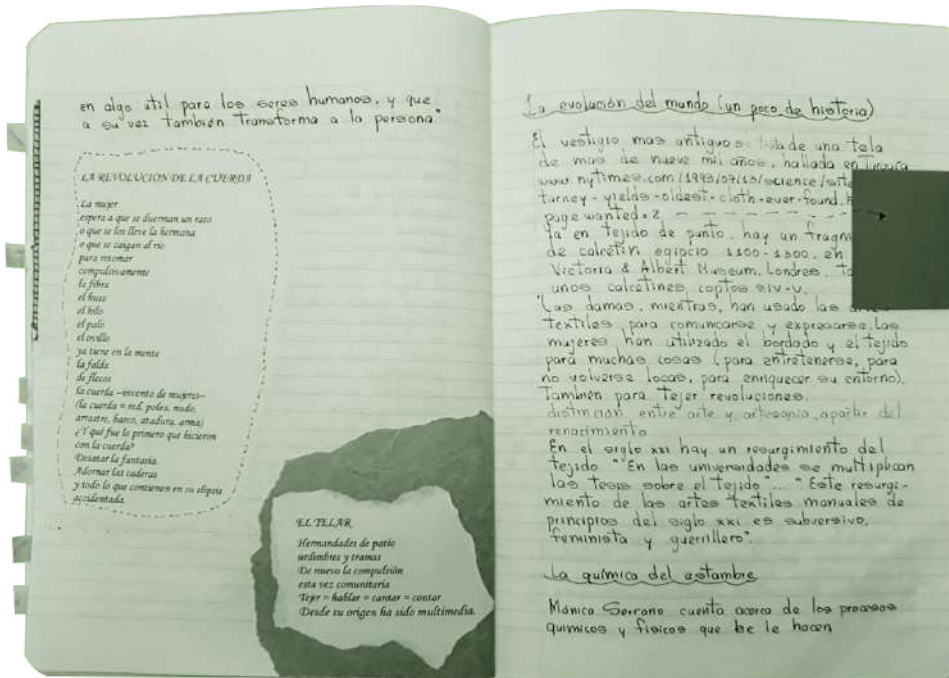 en algo útil para los seres humanos, y que
a su vez también transforma a la persona."
LA REVOLUCION DE LA CUERDA
La mujer
espera a que se duerman un rato
o que se los lleve la hermana
o que se caigan al río
para retomar
compulsivamente
la fibra
el huso
el hilo
el palo
el ovillo
ya tiene en la mente
la falda
de flecos
la cuerda –invento de mujeres–
(la cuerda = red, polea, nudo,
arrastre, barco, atadura, arma)
¿Y qué fue lo primero que hicieron
con la cuerda?
Desatar la fantasía.
Adornar las caderas
y todo lo que contienen en su elipsis
accidentada.
EL TELAR
Hermandades de patio
urdimbres y tramas
De nuevo la compulsión
esta vez comunitaria
Tejer = hablar = cantar = contar
Desde su origen ha sido multimedia.
La evolución del mundo (un poco de historia)
El vestigio mas antiguo de una tela
de mas de nueve mil años, hallada en
www.nytimes.com/1993/07/13/science/site
turney-yields-oldest-cloth-ever-found.
page wanted=2
ya en tejido de punto, hay un
de calcetín egipcio 1100-1300, en
Victoria & Albert Museum, Londres,
unos calcetines, coptos SIV-V.
"Las damas, mientras, han usado las
textiles para comunicarse y expresarse. Las
mujeres han utilizado el bordado y el tejido
para muchas cosas (para entretenerse, para
no volverse locas, para enriquecer su entorno).
También para tejer revoluciones.
distinción entre arte y artesanía apartir del
renacimiento
En el siglo XXI hay un resurgimiento del
tejido "En las universidades se multiplican
las tesis sobre el tejido"..." Este resurgi-
miento de las artes textiles manuales de
principios del siglo XXI es subversivo,
feminista y guerrillero".
La química del estambre
Mónica Serrano cuenta acerca de los procesos
químicos y físicos que se le hacen